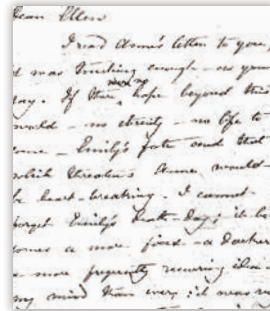 Dear Ellen
I read Anne's letter to you,
it was touching enough - as you
say. If there were no hope beyond this
world - no eternity - no life to
come - Emily's fate and that
which threatens Anne would
be heart-breaking. I cannot
forget Emily's death-day; it be
comes a more fixed - a darker
a more frequently recurring idea in
my mind than ever; it was